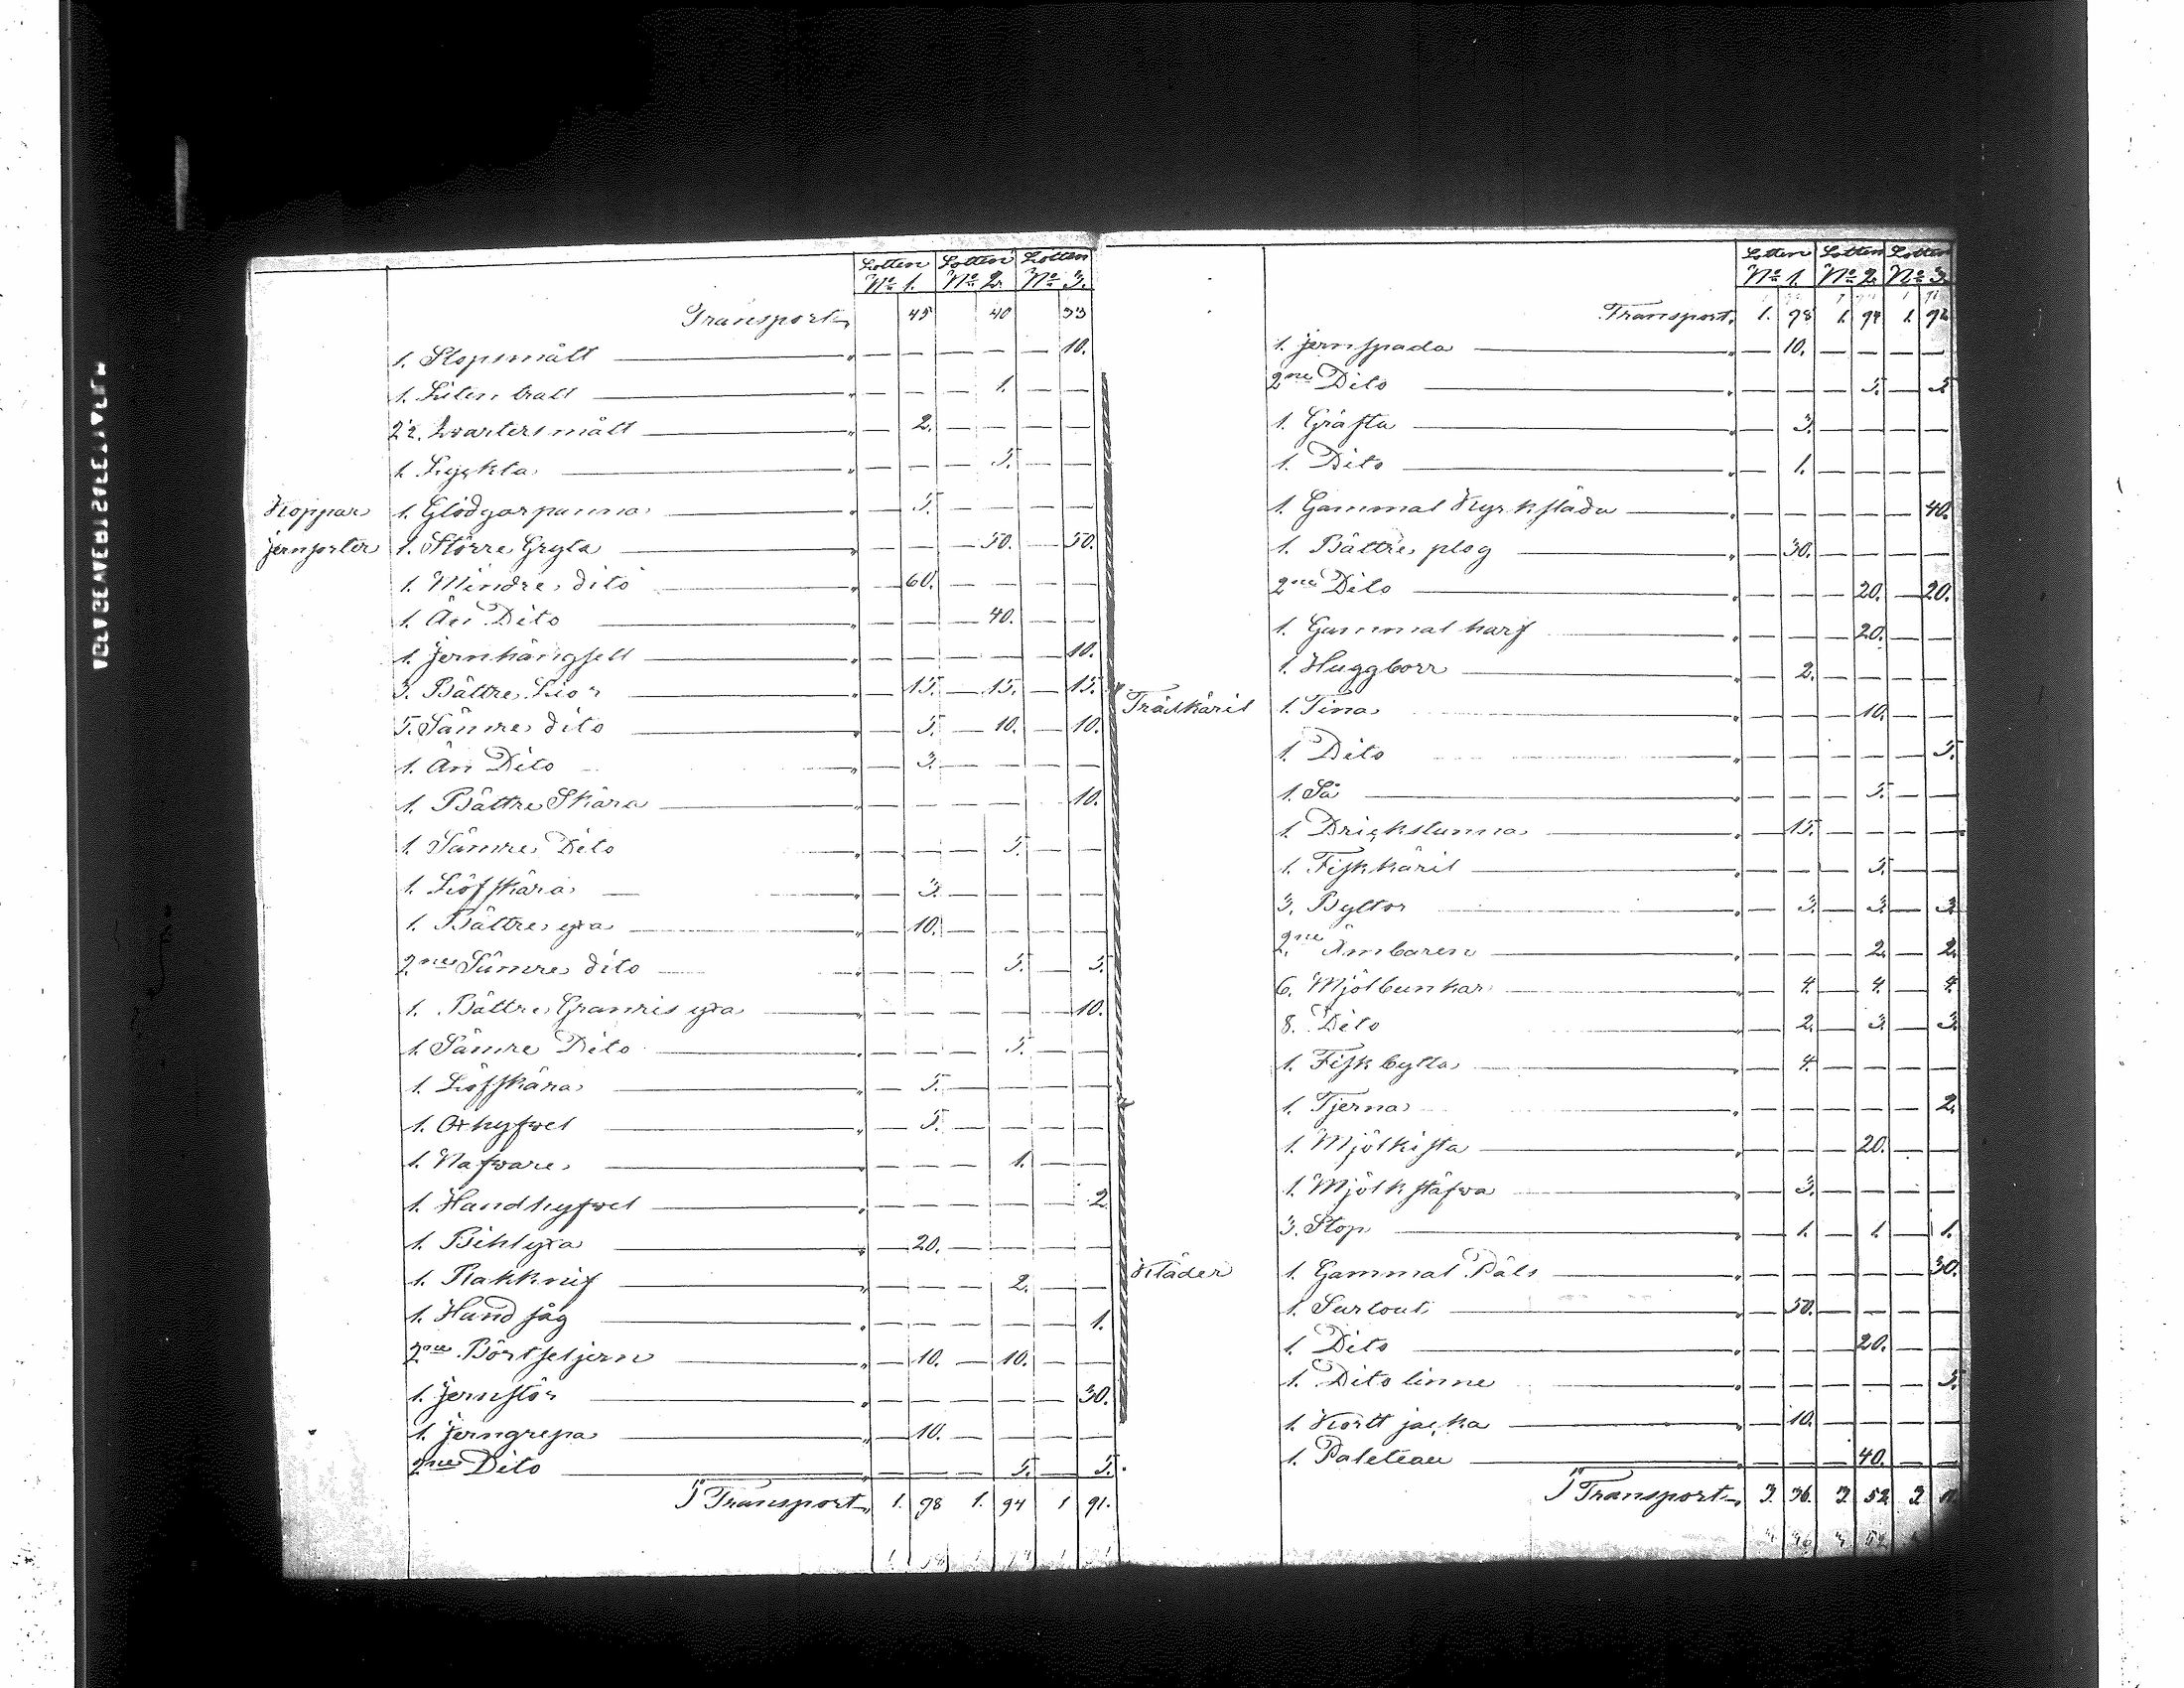 Lotten Lotten Lotten
No 1. No 2. No 3.
Transport, 45 40 33
1. Stopsmått — — — — — 10.
1. Liten tratt — — — 1. — —
2:ne qwartersmått — 2. — — — —
1. Lyckta — — — 5. — —
Koppar 1. Glödgarpanna — 5. — — — —
Jernsorter 1. Större Gryta — — — 50. — 50.
1. Mindre dito — 60. — — — —
1. Än Dito — — — 40. — —
1. Jernhängsell — — — — — 10.
3. Bättre Lior — 15. — 15. — 15.
5. Sämre dito — 5. — 10. — 10.
1. Än Dito — 3. — — — —
1. Bättre Skära — — — — — 10.
1. Sämre Dito — — — 5. — —
1. Löfskära — 3. — — — —
1. Bättre yxa — 10. — — — —
2ne Sämre dito — — — 5. — 5.
1. Bättre Granris yxa — — — — — 10.
1. Sämre Dito — — — 5. — —
1. Löfskära — 5. — — — —
1. Oxhyfvel — 5. — — — —
1. Nafvare — — — 1. — —
1. Handhyfvel — — — — — 2
1. Bihlyxa — 20. — — — —
1. Rakknif — — — 2. — —
1. Hand såg — — — — — 1.
2ne Börtseljern — 10. — 10. — —
1. Jernstör — — — — — 30.
1. Jerngrepa — 10. — — — —
2ne Dito — — — 5. — 5.
Transport, 1. 98 1. 94 1 91.
Lotten Lotten Lotten
No 1. No 2. No 3.
Transport, 1. 98 1. 94 1. 91
1. Jernspada — 10. — — — —
2ne Dito — — — 5. — 5
1. Gräfta — 3. — — — —
1. Dito — 1. — — — —
1. Gammal Kyrksläda — — — — — 40.
1. Bättre plog — 30. — — — —
2ne Dito — — — 20. — 20.
1. Gammal harf — — — 20. — —
1. Huggborr — 2. — — — —
Trädkäril 1. Tina — — — 10. — —
1. Dito — — — — — 5.
1. Så — — — 5. — —
1. Drickstunna — 15. — — — —
1. Fiskkäril — — — 5. — —
3. Byttor — 3. — 3. — 3.
2ne Ämbaren — — — 2. — 2.
6. Mjölbunkar — 4. — 4. — 4.
8. Dito — 2. — 3. — 3.
1. Fiskbytta — 4. — — — —
1. Tjerna — — — — — 2.
1. Mjölkista — — — 20. — —
1. Mjölkstäfva — 3. — — — —
3. Stop — 1. — 1. — 1.
Kläder 1. Gammal Päls — — — — — 30.
1. Surtout — 50. — — — —
1. Dito — — — 20. — —
1. Dito linne — — — — — 5.
1. Kortt jacka — 10. — — — —
1. Paleteau — — — 40. — —
Transport, 3. 36. 3. 52 3